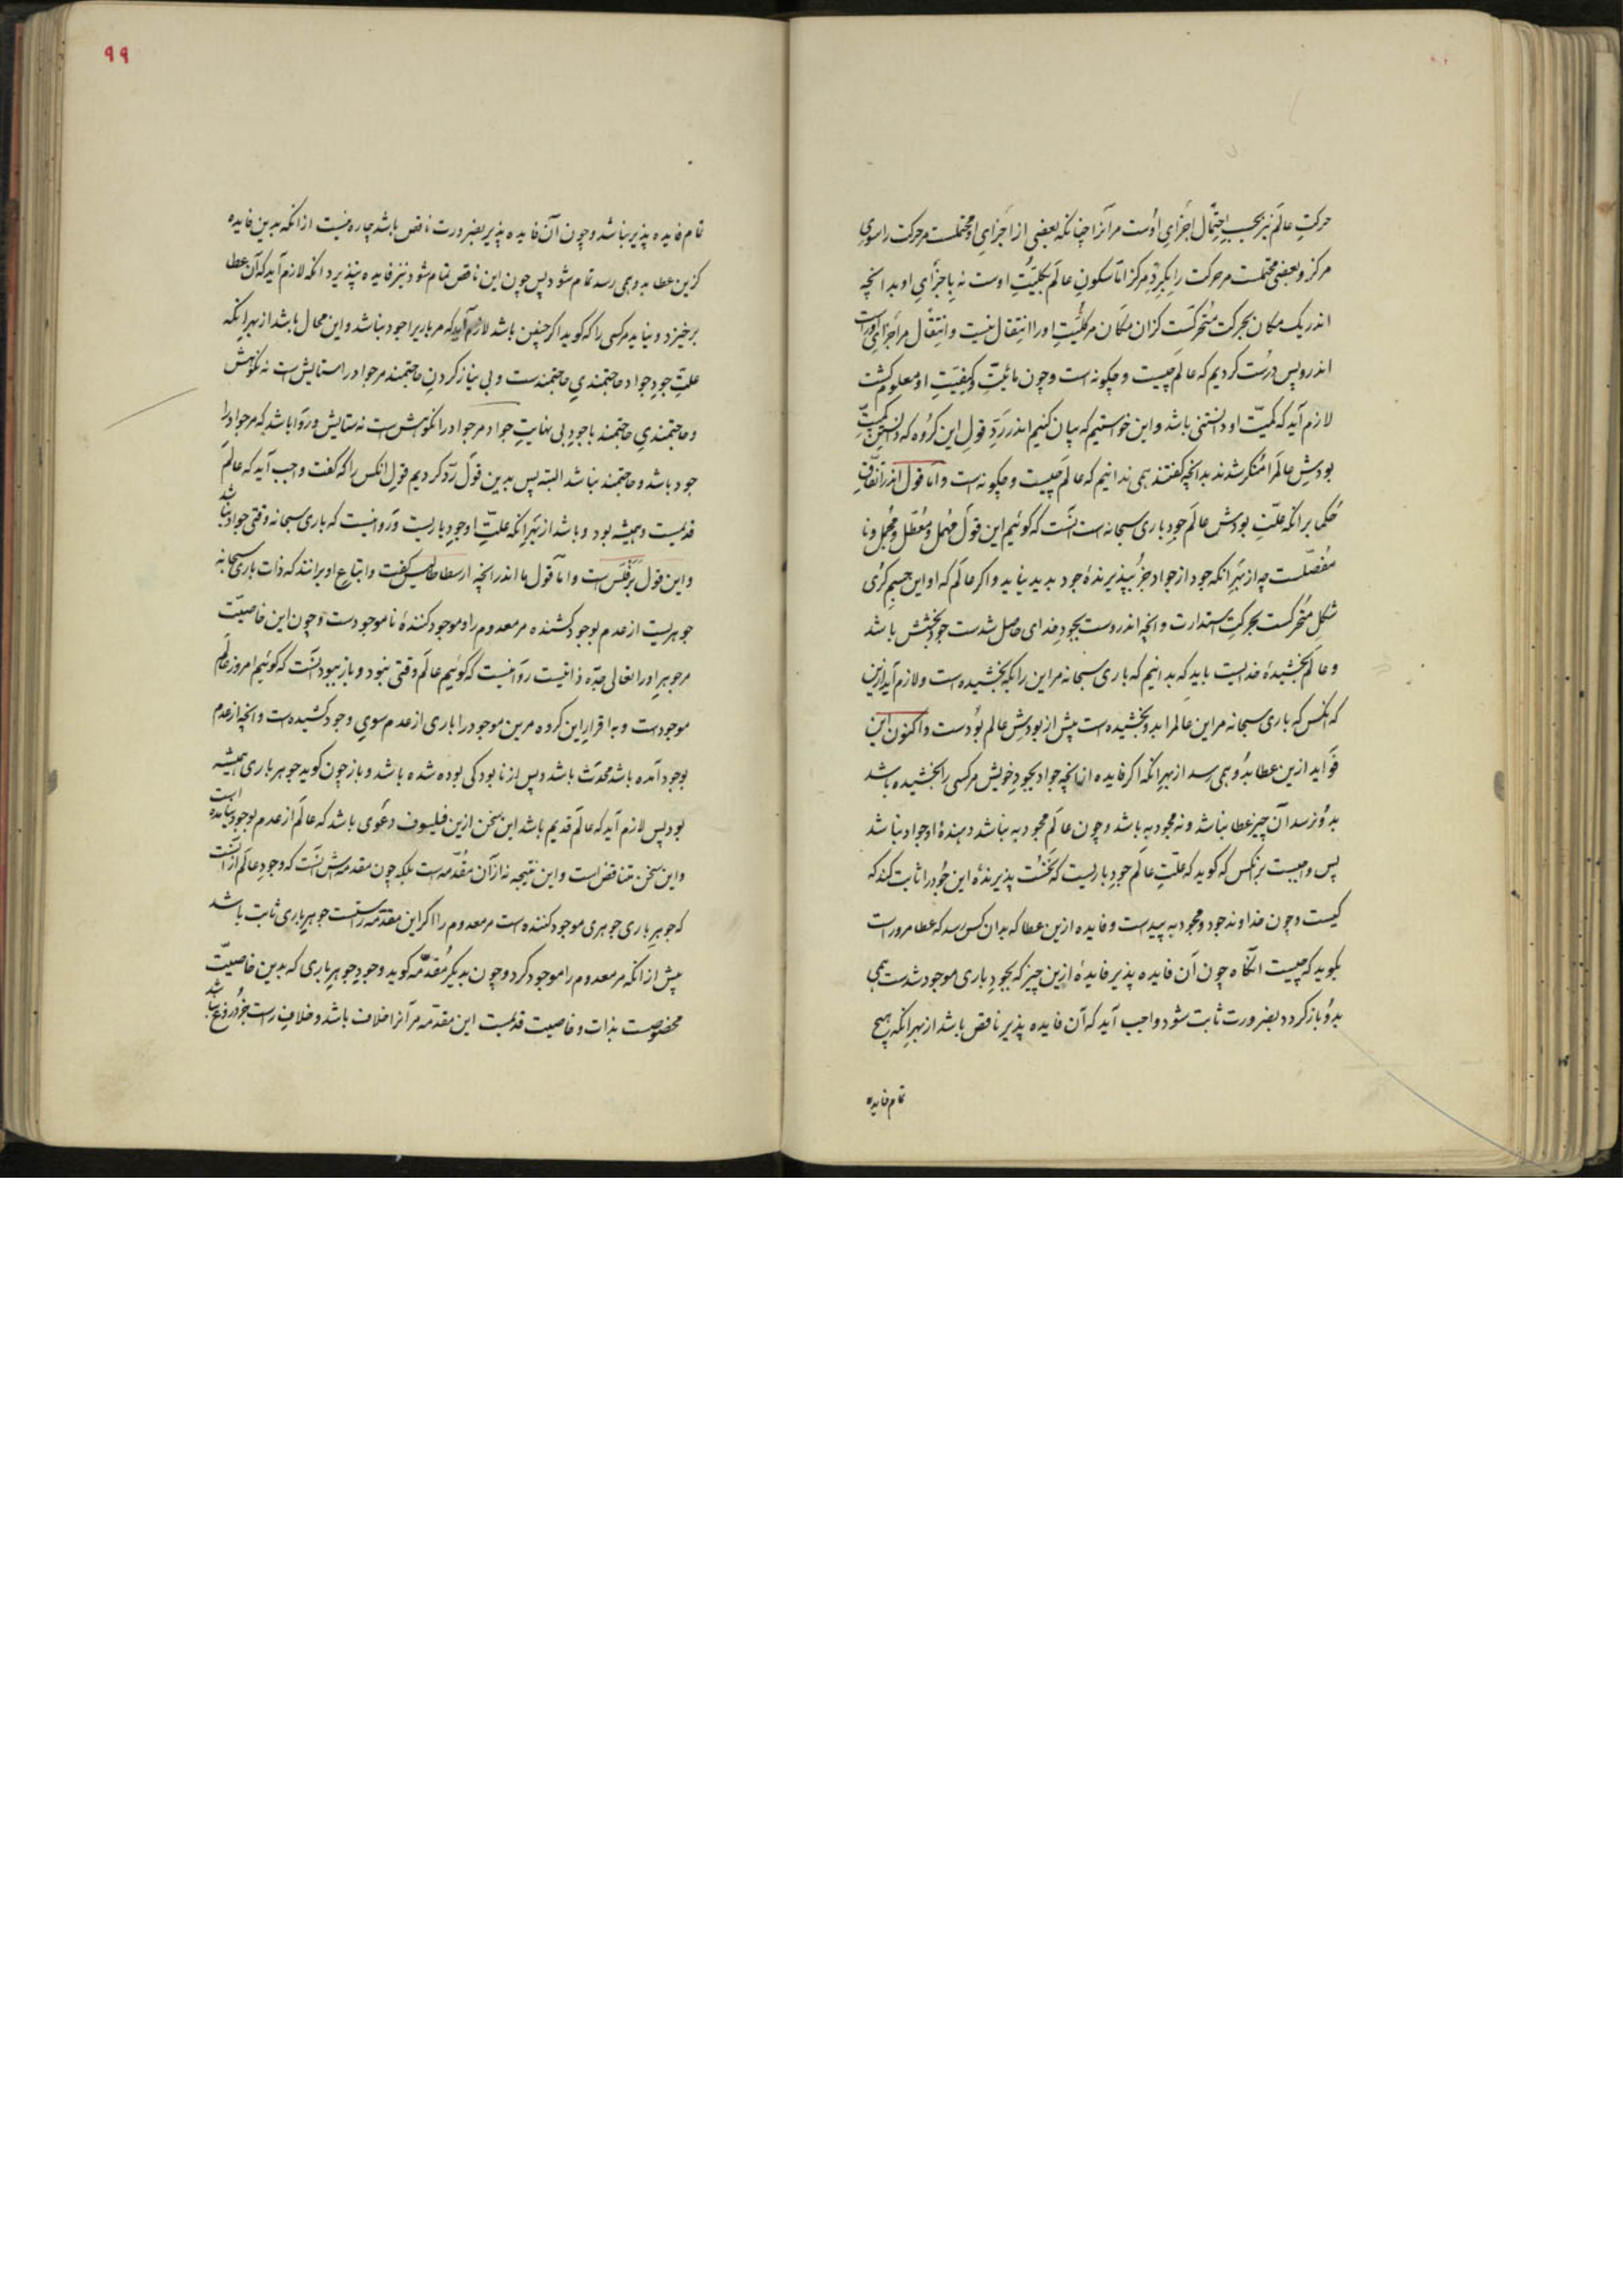 حرکتِ عالم نیز بحسبِ احتمال اجزای اوست مر آنرا چنانکه بعضی از اجزایِ او محتملست مر حرکت را سویِ
مرکز و بعضی محتملست مر حرکت را بگردِ مرکز امّا سکونِ عالم بکلیّتِ اوست نه باجزایِ او بدانچه
اندر یک مکان بحرکت متحرکست کزان مکان مر کلیّتِ او را انتقال نیست و انتقال مر اجزایِ اوراست
اندرو پس درست کردیم که عالم چیست و چگونه است و چون مائیّت و کیفیّتِ او معلوم گشت
لازم آید که کمیّت او دانستنی باشد و این خواستیم که بیان کنیم اندر ردِّ قولِ این گروه که دانستنِ کمیّتِ
بودشِ عالم را منکر شدند بدانچه گفتند همی ندانیم که عالم چیست و چگونه است و امّا قول اندر اتّفاقِ
حُکما بر آنکه علّتِ بودش عالم جودِ باری سبحانه است آنست که گوئیم این قول مهمل و معطّل و مجمل و نا
مفصّلست چه از بهر آنکه جود از جواد جز بپذیرندهٔ جود پدید نیاید و اگر عالم که او این جسم کُری
شکلِ متحرکست بحرکتِ استدارت و انچه اندروست بجودِ خدای حاصل شدست جود بخشش باشد
و عالم بخشیدهٔ خدایست باید که بدانیم که باری سبحانه مر این را بکه بخشیده است و لازم آید ازین
که آنکس که باری سبحانه مر این عالم را بدو بخشیده است پیش از بودشِ عالم بودست و اکنون این
فواید ازین عطا بدو همی رسد از بهر آنکه اگر فایده از انچه جواد بجودِ خویش مر کسی را بخشیده باشد
بدو نرسد آن چیز عطا نباشد و نه مجود به باشد و چون عالم مجود به نباشد دهندهٔ او جواد نباشد
پس واجبست بر آنکس که گوید که علّتِ عالم جودِ باریست که نخست پذیرندهٔ این جُود را ثابت کند که
کیست و چون خداوند جود و مجود به پیداست و فایده ازین عطا که بدان کس رسد که عطا مر وراست
بگوید که چیست آنگاه چون آن فایده پذیر فایدهٔ ازین چیز که بجودِ باری موجود شدست همی
بدو باز گردد بضرورت ثابت شود و واجب آید که آن فایده پذیر ناقص باشد از بهر آنکه هیچ
تمام فایده
٩٩
تمام فایده پذیر نباشد و چون آن فایده پذیر بضرورت ناقص باشد چاره نیست از آنکه بدین فایده
کزین عطا بدو همی رسد تمام شود پس چون این ناقص تمام شود نیز فایده نپذیرد آنگه لازم آید که آن عطا
برخیزد و نیاید مر کسی را که گوید اگر چنین باشد لازم آید که مر باریرا جود نباشد و این محال باشد از بهر آنکه
علّتِ جودِ جواد حاجتمندیِ حاجتمندست و بی نیاز کردنِ حاجتمند مر جواد را ستایش است نه نکوهش
و حاجتمندیِ حاجتمند با جودِ بی نهایتِ جواد مر جواد را نکوهش است نه ستایش و روا باشد که مر جواد را
جود باشد و حاجتمند نباشد البته پس بدین قول ردّ کردیم قولِ آنکس را که گفت واجب آید که عالم
قدیمست و همیشه بود و باشد از بهر آنکه علّتِ او جودِ باریست و روا نیست که باری سبحانه وقتی جواد نباشد
و این قول برقلس است و امّا قول ما اندر انچه ارسطاطالیس گفت و اتباع او برانند که ذات باری سبحانه
جوهریست از عدم بوجود کشنده مر معدوم را و موجود کنندهٔ ناموجودست و چون این خاصیّت
مر جوهرِ او را تعالی جدّه ذاتیست روا نیست که گوئیم عالم وقتی نبود و باز ببود آنست که گوئیم امروز عالم
موجودست و به اقرارِ این گروه مرین موجود را باری از عدم سویِ وجود کشیده است و انچه از عدم
بوجود آمده باشد محدَث باشد و پس از نابودگی بوده شده باشد و باز چون گوید جوهر باری همیشه
بود پس لازم آید که عالم قدیم باشد این سخن ازین فیلسوف دعوی باشد که عالم از عدم بوجود نیامده است
و این سخن متناقض است و این نتیجه نه از آن مقدّمه است بلکه چون مقدمه ش آنست که وجودِ عالم از آنست
که جوهرِ باری جوهری موجود کننده است مر معدوم را اگر این مقدّمه راستست جوهرِ باری ثابت باشد
پیش از آنکه مر معدوم را موجود کرد و چون بدیگر مقدّمه گوید وجودِ جوهرِ باری که بدین خاصیّت
مخصوصست بذات و خاصیت قدیمست این مقدّمه مر آنرا خلاف باشد و خلافِ راست جز دروغ نباشد